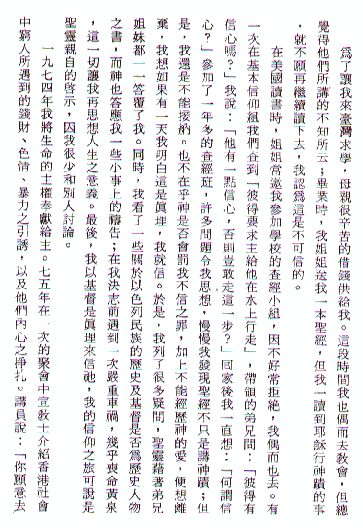 為了讓我來臺灣求學，母親很辛苦的借錢供給我。這段時間我也偶而去教會，但總
覺得他們所講的不知所云；畢業時，我姐姐送我一本聖經，但我一讀到耶穌行神蹟的事
，就不願再繼續讀下去，我認為這是不可信的。
在美國讀書時，姐姐常邀我參加學校的查經小組，因不好常拒絕，我偶而也去。有
一次在基本信仰組我們查到「彼得要求主給他在水上行走」，帶領的弟兄問：「彼得有
信心嗎？」我說：「他有一點信心，否則豈敢走這一步？」回家後我一直想：「何謂信
心？」參加了一年多的查經班，許多問題令我思想，慢慢我發現聖經不只是講神蹟；但
是，我還是不能接納。也不在乎神是否會罰我不信之罪，加上不能經歷神的愛，便想離
棄，我想如果有一天我明白這是真理，我就信。於是，我列了很多疑問，聖靈藉著弟兄
姐妹都一一答覆了我。同時，我看了一些關於以色列民族的歷史及基督是否為歷史人物
之書，而神也答應我一些小事上的禱告；在我決志前遇到一次嚴重車禍，幾乎喪命黃泉
，這一切讓我再思想人生之意義。最後，我以基督是真理來信祂，我的信仰之旅可說是
聖靈親自的啓示，因我很少和別人討論。
一九七四年我將生命的主權奉獻給主。七五年在一次的聚會中宣教士介紹香港社會
中窮人所遇到的錢財、色情、暴力之引誘，以及他們內心之掙扎。講員說：「你願意去